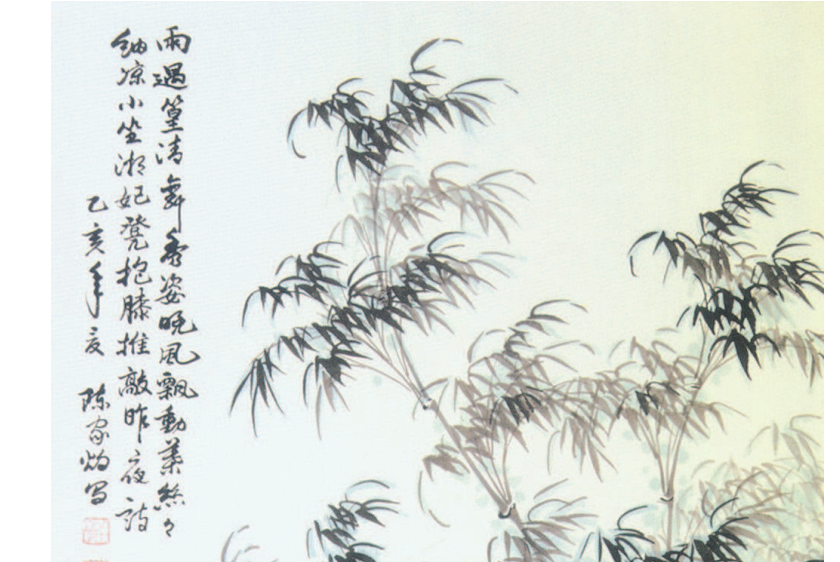 雨過篁清舞秀姿晚風飄動葉絲々
納凉小坐湘妃凳抱膝推敲昨夜詩
乙亥年夏 陈家灼写